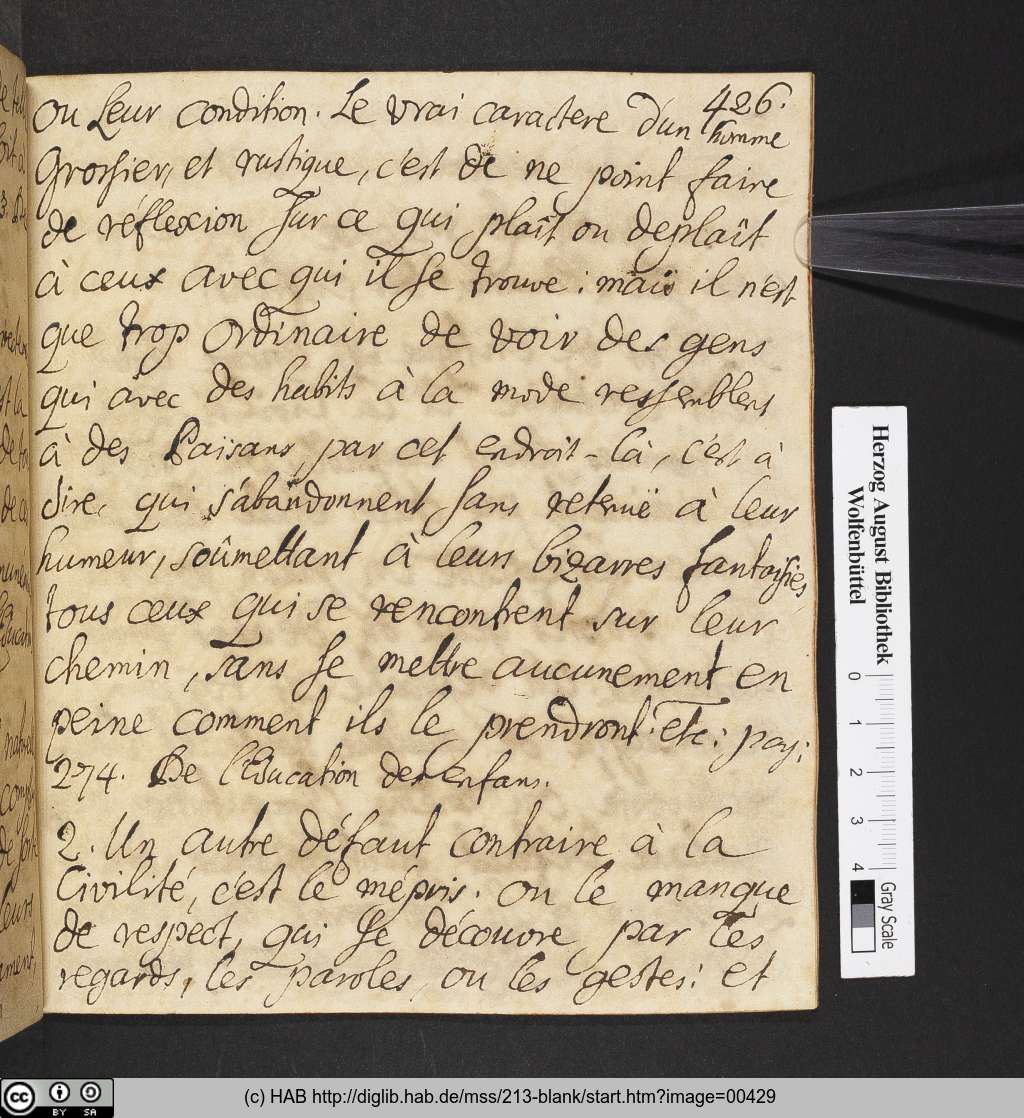 426.
ou leur condition. Le vrai caractere d'un homme
Grossier, et rustique, c'est de ne point faire
de réflexion sur ce qui plaît ou deplaît
à ceux avec qui il se trouve: mais il n'est
que trop ordinaire de voir des gens
qui avec des habits à la mode ressemblent
à des Païsans par cet endroit-là, c'est à
dire, qui s'abandonnent sans retenuë à leur
humeur, soûmettant à leurs bizarres fantaisies,
tous ceux qui se rencontrent sur leur
chemin, sans se mettre aucunement en
peine comment ils le prendront. etc: pag:
274. De l'Education des enfans.
2. Un autre défaut contraire à la
Civilité, c'est le mépris. ou le manque
de respect, qui se découvre par les
regards, les paroles, ou les gestes: et
Herzog August Bibliothek
Wolfenbüttel
0 1 2 3 4
Gray Scale
cc BY SA
(c) HAB http://diglib.hab.de/mss/213-blank/start.htm?image=00429